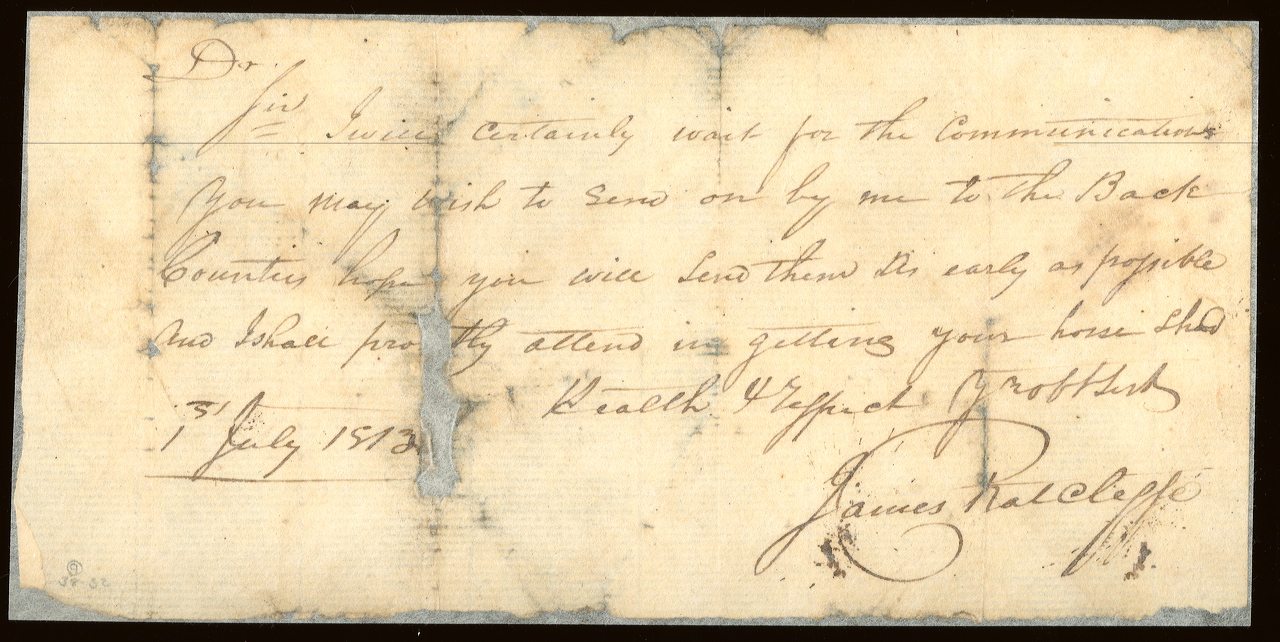 Dr.
Sir I will certainly wait for the Communications
You may wish to Send on by me to the Back
Counties hope you will Send them as early as possible
And I shall pro tly attend in getting your horse Shod
Health & respect Yr obt Servt
1st July 1813
James Ratcliffe
38 32